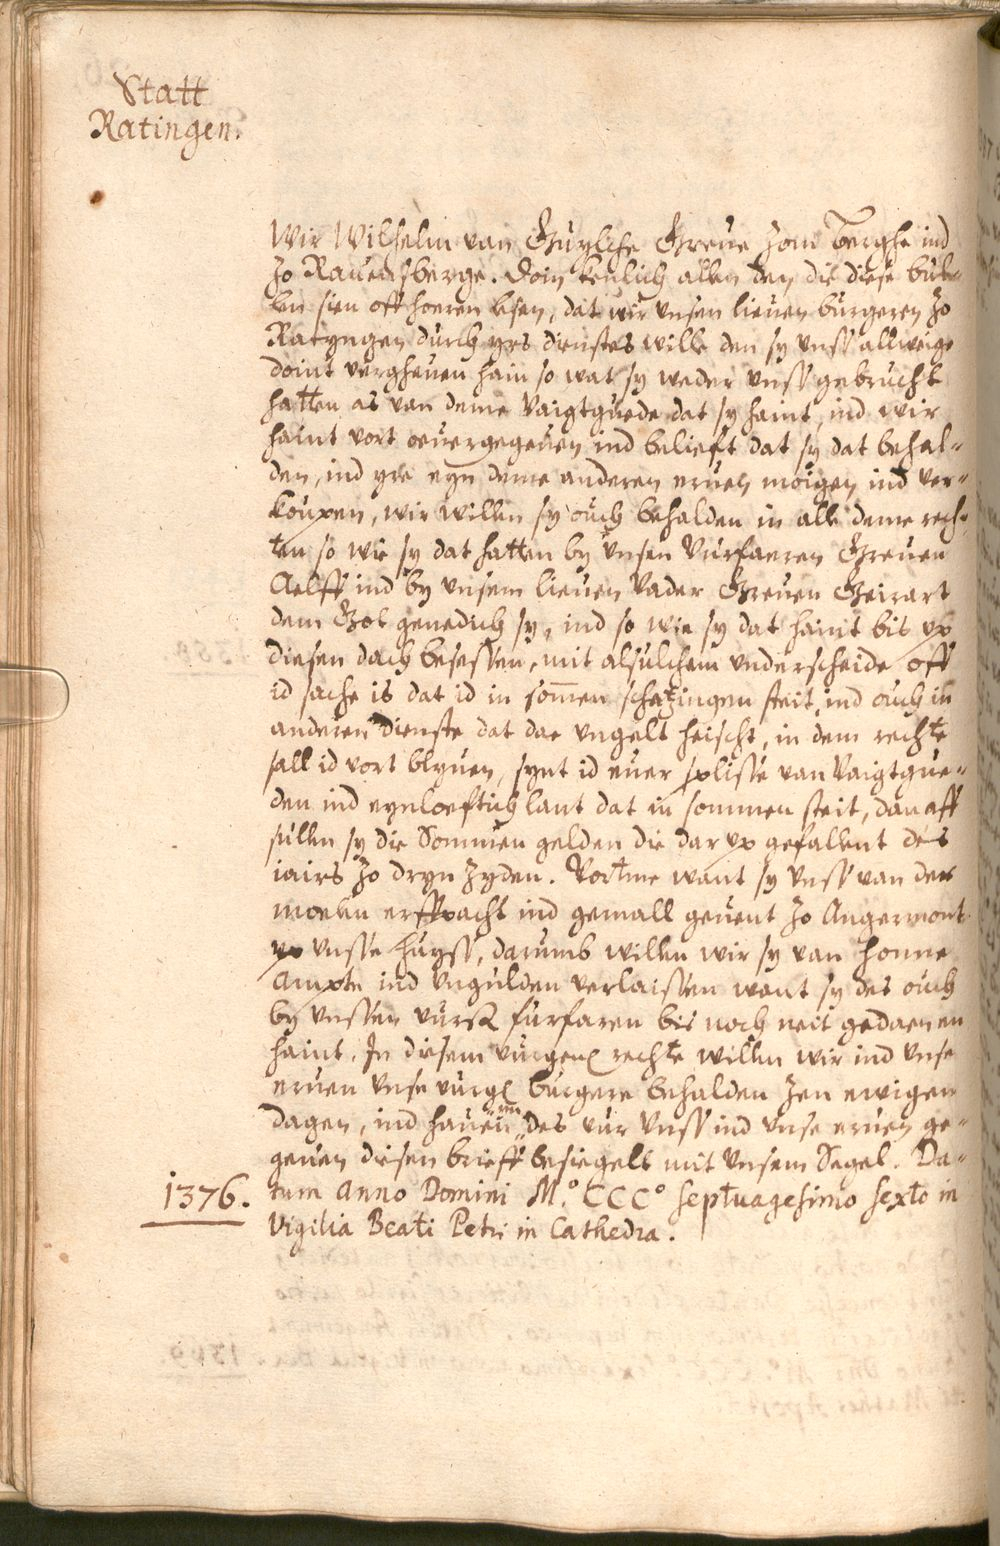 Statt
Ratingen.
Wir Wilhelm van Guylche Greue zom Berghe ind
zo Rauensberge. Doin kenlich allen den die diese buͤl„
len sien off hoeren lesen, dat wir vnsen lieuen bürgeren zo
Ratyngen dürch yrs dienstes wille den sy vnss allweige
doint vergheuen hain so wat sy weder vnss gebrucht
hatten as van deme Vaigtguede dat sy haint, ind wir
haint vort oeuergegeuen ind belieft dat sy dat behal„
den, ind yre eyn deme anderen eruen moigen ind ver„
koupen, wir willen sy ouch behalden in alle deme rech„
ten so wie sy dat hatten by vnsen Vurfaeren Greuen
Aelff ind by vnsem lieuen Vader Greuen Geirart
dem Got genedich sy, ind so wie sy dat haint bis up
diesen dach besessen, mit alsulchem vnderscheide off
id sache is dat id in somen schatzingen steit, ind ouch in
anderen dienste dat dae vngelt heischt, in dem rechte
sall id vort blyuen, synt id euer splisse van Vaigtgue„
den ind eynloeftich lant dat in sommen steit, dan aff
sullen sy die Sommen gelden die dar up gefallent des
iairs zo dryn zyden. Vortme want sy vnss van der
moelen erffpacht ind gemall geuent zo Angermont
up vnsse huyss, darumb willen wir sy van honne
Ampte ind vngulden verlaissen want sy des ouch
by vnssen vurs furfaren bis noch neit gedaen en
haint. In diesem vurgen rechte willen wir ind vnse
eruen vnse vurg burgere behalden zen ewigen
dagen, ind hauen „ des vur vnss ind vnse eruen ge„
geuen diesen brieff besiegelt mit vnsem Segel. Da„
1376. tum Anno Domini M.º CCCº septuagesimo sexto in
Vigilia Beati Petri in Cathedra.